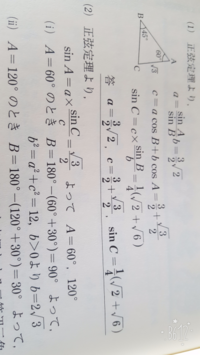 (1) 正弦定理より，
a = sin A / sin B b = 3/2 √2
c = a cos B + b cos A = 3/2 + √3/2
sin C = c × sin B / b = 1/4 (√2 + √6)
答 a = 3/2 √2，c = 3/2 + √3/2，sin C = 1/4 (√2 + √6)
A
B
C
45°
60°
√3
(2) 正弦定理より，
sin A = a × sin C / c = √3/2 よって A = 60°，120°
(i) A = 60° のとき B = 180° − (60° + 30°) = 90° よって，
b² = a² + c² = 12，b > 0 より b = 2√3
(ii) A = 120° のとき B = 180° − (120° + 30°) = 30° よって，